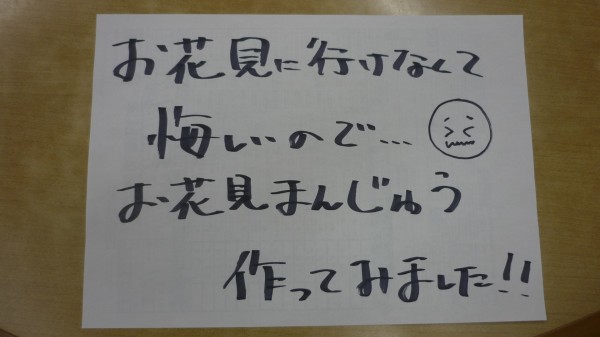 お花見に行けなくて
悔しいので…
お花見まんじゅう
作ってみました!!